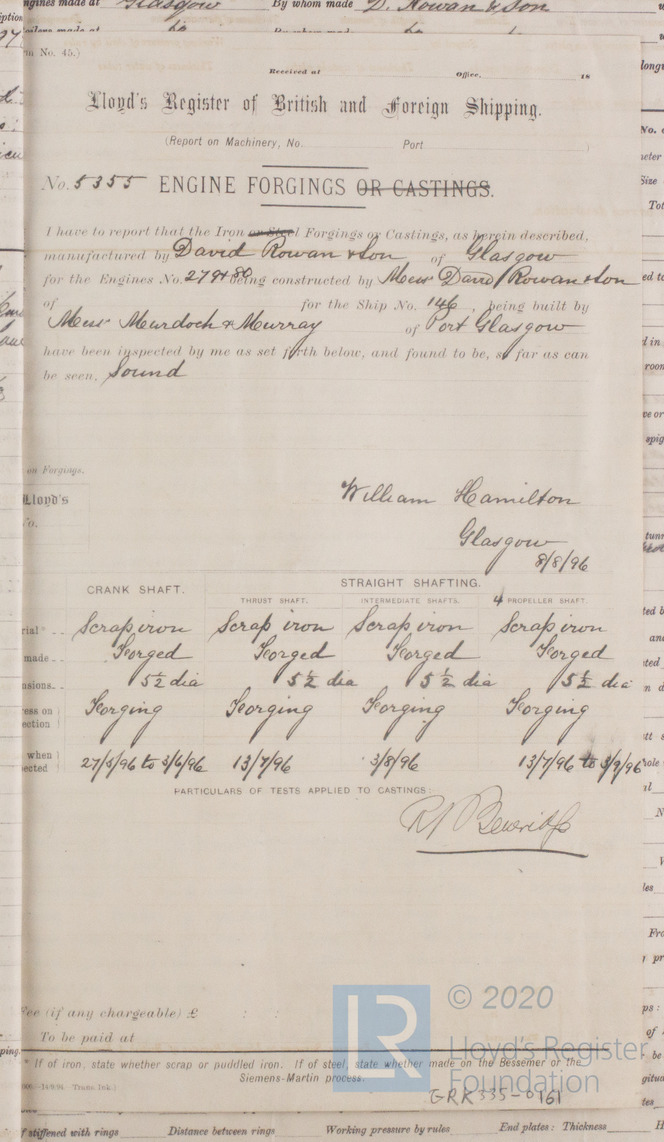 ngines made at Glasgow By whom made D. Rowan & Son
m No. 45.)
Received at Office, 18
Lloyd's Register of British and Foreign Shipping.
(Report on Machinery, No. Port )
No. 5355 ENGINE FORGINGS OR CASTINGS.
I have to report that the Iron or Steel Forgings or Castings, as herein described,
manufactured by David Rowan & Son of Glasgow
for the Engines No. 279 & 80 being constructed by Mess David Rowan & Son
of for the Ship No. 146, being built by
Mess Murdoch & Murray of Port Glasgow
have been inspected by me as set forth below, and found to be, so far as can
be seen, Sound
on Forgings.
Lloyd's
No.
William Hamilton
Glasgow
8/8/96
CRANK SHAFT. STRAIGHT SHAFTING.
THRUST SHAFT. INTERMEDIATE SHAFTS. 4 PROPELLER SHAFT.
rial* Scrap iron Scrap iron Scrap iron Scrap iron
made Forged Forged Forged Forged
nsions 5½ dia 5½ dia 5½ dia 5½ dia
ress on
ection Forging Forging Forging Forging
when
pected 27/5/96 to 3/6/96 13/7/96 3/8/96 13/7/96 to 3/9/96
PARTICULARS OF TESTS APPLIED TO CASTINGS:
Fee (if any chargeable) £ : :
To be paid at
* If of iron, state whether scrap or puddled iron. If of steel, state whether made on the Bessemer or the
Siemens-Martin process.
14/9/94. Trans. Ink.)
LR © 2020
Lloyd's Register
Foundation
GRK335-0161
if stiffened with rings Distance between rings Working pressure by rules End plates: Thickness